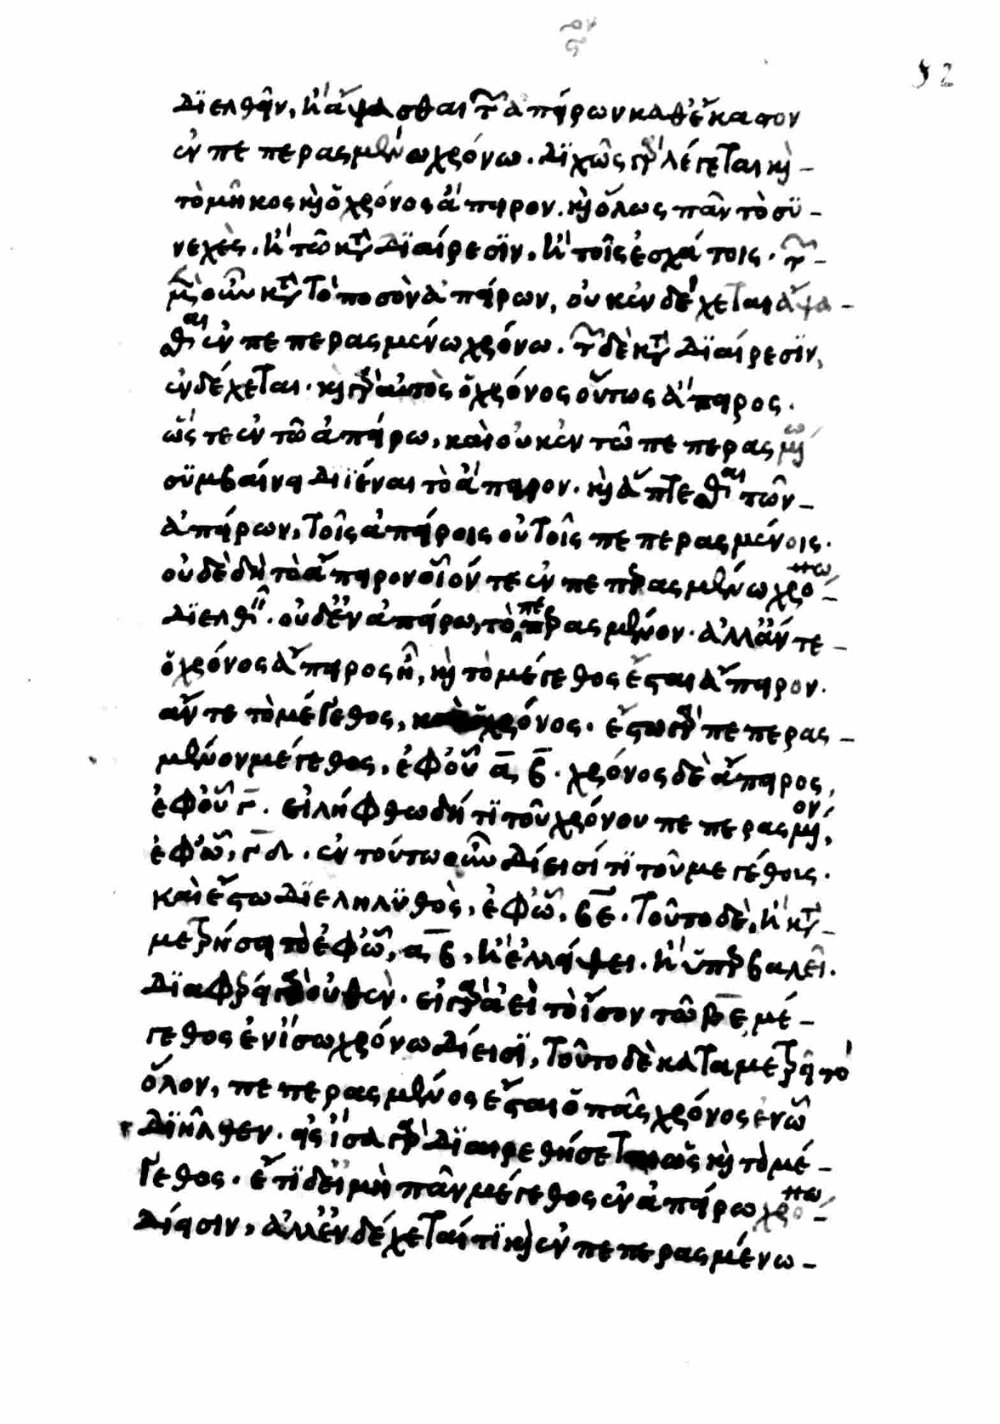 διελθεῖν, ἢ ἅψασθαι τῶν ἀπείρων καθ' ἕκαστον
ἐν πεπερασμένω χρόνω. διχῶς γὰρ λέγεται καὶ
τὸ μῆκος καὶ ὁ χρόνος ἄπειρον. καὶ ὅλως πᾶν τὸ συ-
νεχὲς. ἤτοι κατὰ διαίρεσιν, ἢ τοῖς ἐσχάτοις. τῶν
μὲν οὖν κατὰ τὸ ποσὸν ἀπείρων, οὐκ ἐνδέχεται ἅψα-
σθαι ἐν πεπερασμένω χρόνω. τῶν δὲ κατὰ διαίρεσιν,
ἐνδέχεται. καὶ γὰρ αὐτὸς ὁ χρόνος οὕτως ἄπειρος.
ὥστε ἐν τῶ ἀπείρω, καὶ οὐκ ἐν τῶ πεπερασμένω
συμβαίνει διιέναι τὸ ἄπειρον. καὶ ἅπτεσθαι τῶν
ἀπείρων, τοῖς ἀπείροις οὐ τοῖς πεπερασμένοις.
οὐδὲ δὴ τὸ ἄπειρον οἷόν τε ἐν πεπερασμένω χρόνω
διελθεῖν. οὐδ' ἐν ἀπείρω, τὸ πεπερασμένον. ἀλλ' ἄν τε
ὁ χρόνος ἄπειρος ἦ, καὶ τὸ μέγεθος ἔσται ἄπειρον.
ἄν τε τὸ μέγεθος, καὶ ὁ χρόνος. ἔστω γὰρ πεπερας
μένον μέγεθος, ἐφ' οὗ α β. χρόνος δὲ ἄπειρος,
ἐφ' οὗ γ. εἰλήφθω δή τι τοῦ χρόνου πεπερασμένον,
ἐφ' ὧ, γ δ. ἐν τούτω οὖν δίεισί τι τοῦ μεγέθους.
καὶ ἔστω διεληλυθὸς, ἐφ' ὧ, β ε. τοῦτο δὲ, ἢ κατα
μετρήσει τὸ ἐφ' ὧ, α β, ἢ ἐλλείψει. ἢ ὑπερβαλεῖ.
διαφέρει γὰρ οὐθὲν. εἰ γὰρ ἀεὶ τὸ ἴσον τῶ β ε μέ-
γεθος ἐν ἴσω χρόνω δίεισι, τοῦτο δὲ καταμετρεῖ τὸ
ὅλον, πεπερασμένος ἔσται ὁ πᾶς χρόνος ἐν ὧ
διῆλθεν. εἰς ἴσα γὰρ διαιρεθήσεται ὡς καὶ τὸ μέ-
γεθος. ἔτι δ' εἰ μὴ πᾶν μέγεθος ἐν ἀπείρω χρόνω
δίεισιν, ἀλλ' ἐνδέχεταί τι καὶ ἐν πεπερασμένω